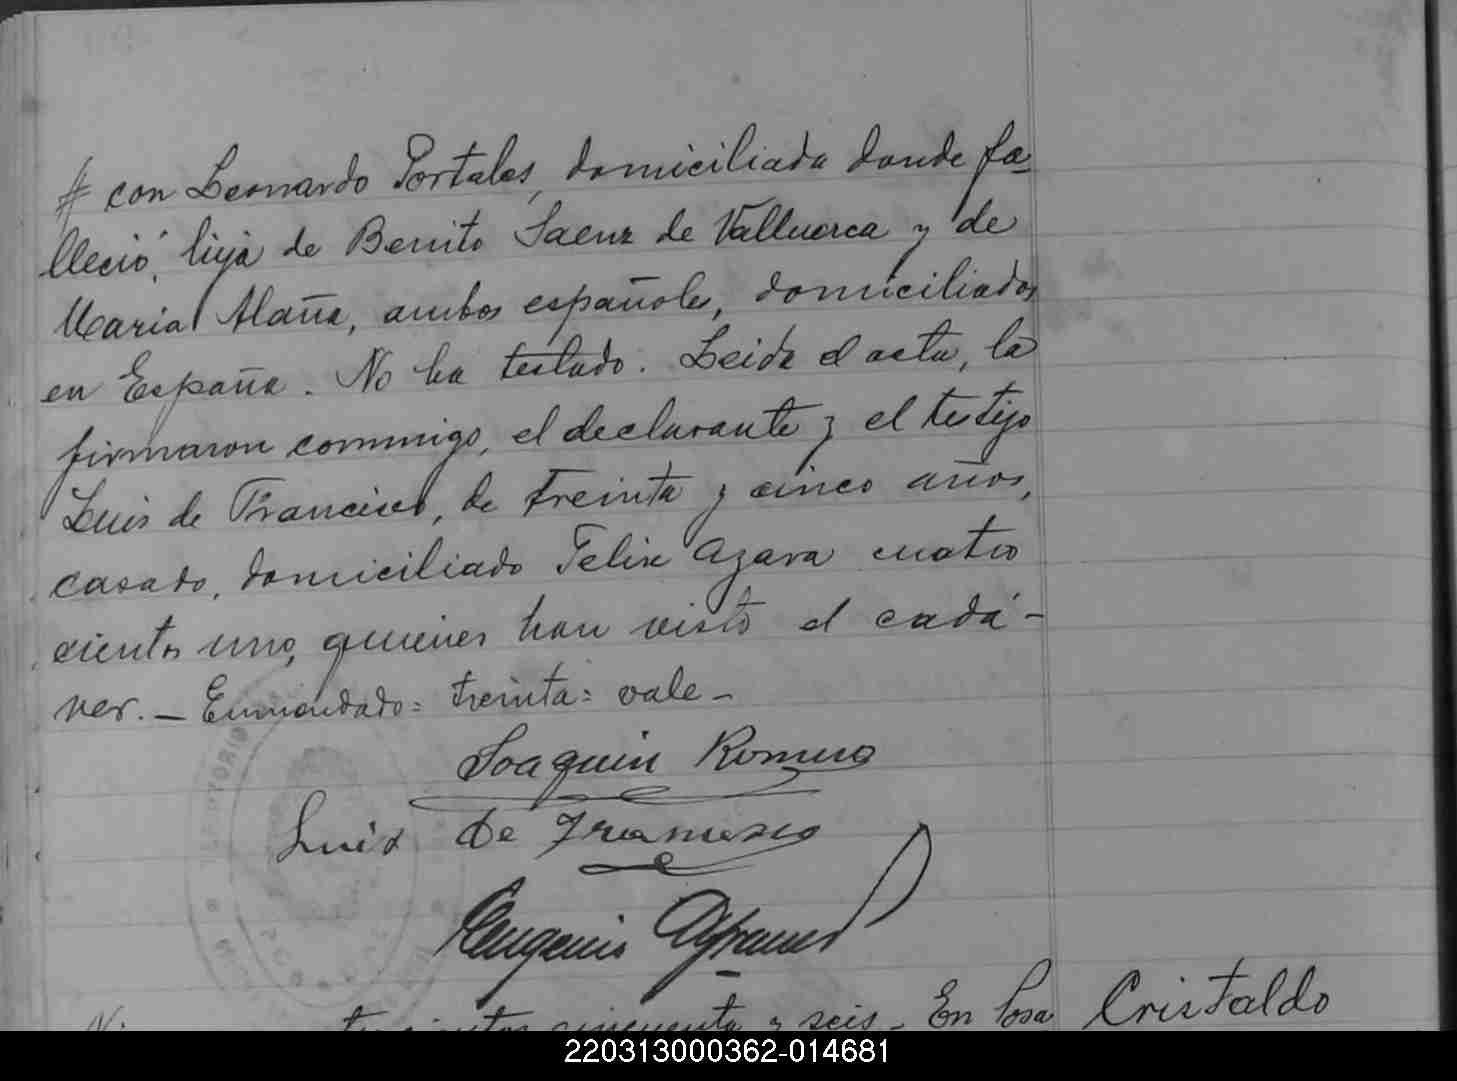 # con Leonardo Portales, domiciliada donde fa-
lleció, hija de Benito Saenz de Valluerca y de
Maria Alaña, ambos españoles, domiciliados
en España. No ha testado. Leida el acta, la
firmaron conmigo, el declarante y el testigo
Luis de Francisco, de treinta y cinco años,
casado, domiciliado Felix Azara cuatro
cientos uno, quienes han visto el cadá-
ver. — Enmendado = treinta = vale —
Joaquin Romero
Luis de Francisco
Eugenio
cincuenta y seis - En Posa
Cristaldo
220313000362-014681